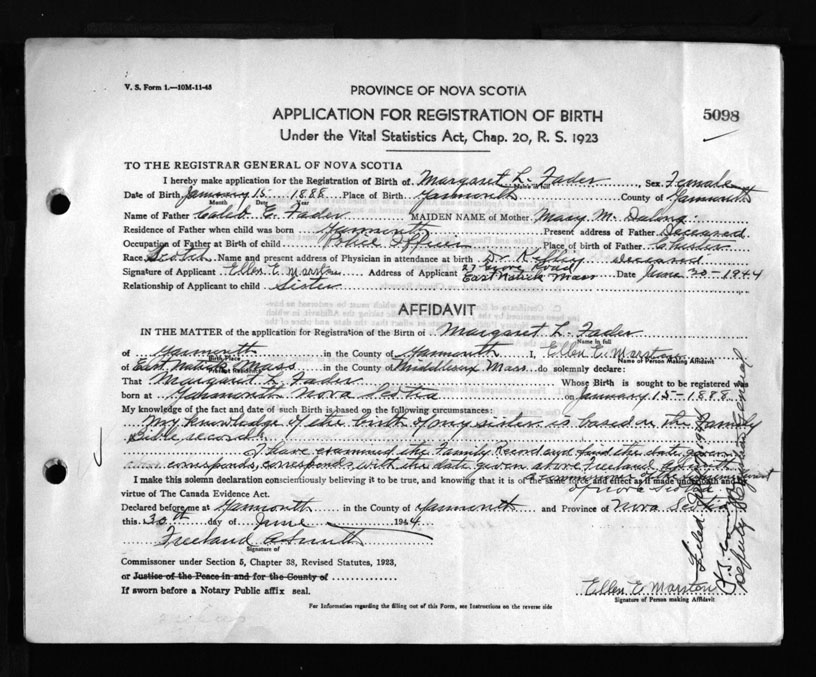 V. S. Form 1.—10M-11-43
PROVINCE OF NOVA SCOTIA
APPLICATION FOR REGISTRATION OF BIRTH
5098
Under the Vital Statistics Act, Chap. 20, R. S. 1923
TO THE REGISTRAR GENERAL OF NOVA SCOTIA
I hereby make application for the Registration of Birth of Margaret L. Fader, Sex Female
Name in full
Date of Birth January 15 1888 Place of Birth Yarmouth County of Yarmouth
Month Day Year
Name of Father Caleb E. Fader MAIDEN NAME of Mother Mary M.
Residence of Father when child was born Yarmouth Present address of Father Deceased
Occupation of Father at Birth of child Police Officer Place of birth of Father Chester
Race Scotch Name and present address of Physician in attendance at birth Dr deceased
Signature of Applicant Ellen E. Marston Address of Applicant 27 Grove Road East Natick Mass Date June 30-1944
Relationship of Applicant to child Sister
AFFIDAVIT
IN THE MATTER of the application for Registration of the Birth of Margaret L. Fader
Name in full
of Yarmouth in the County of Yarmouth I, Ellen E. Marston
Birth Place Name of Person Making Affidavit
of East Natick Mass in the County of Middlesex Mass do solemnly declare:
Present Residence
That Margaret L. Fader Whose Birth is sought to be registered was
born at Yarmouth Nova Scotia on January 15-1888.
My knowledge of the fact and date of such Birth is based on the following circumstances:
My knowledge of the birth of my sister is based on the Family
Bible record.
I have examined the Family Record and find the date given
corresponds, corresponds with the date given above Freeland
I make this solemn declaration conscientiously believing it to be true, and knowing that it is of the same force and effect as if made under oath and by
of Nova Scotia
virtue of The Canada Evidence Act.
Declared before me at Yarmouth in the County of Yarmouth and Province of Nova Scotia
this 30th day of June 1944
Freeland
Signature of
Commissoner under Section 5, Chapter 38, Revised Statutes, 1923,
or Justice of the Peace in and for the County of
If sworn before a Notary Public affix seal.
Ellen E. Marston
Signature of Person making Affidavit
For Information regarding the filling out of this Form, see Instructions on the reverse side
Filed
Deputy Registrar General